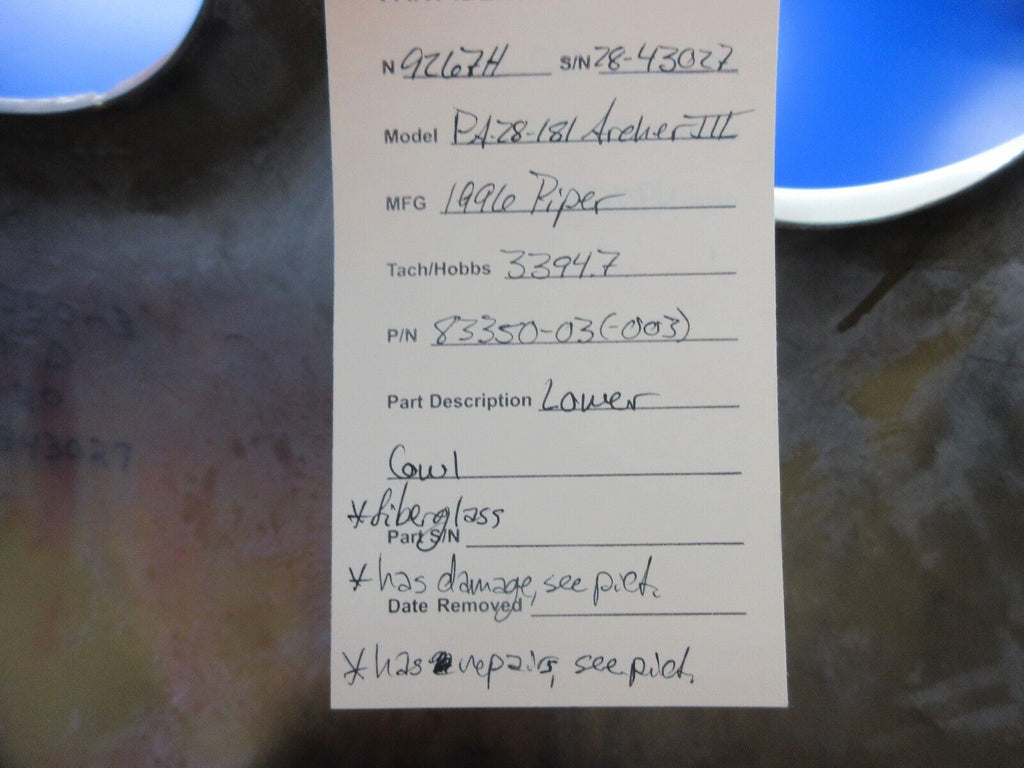 N 9267H S/N 28-43027
Model PA-28-181 Archer III
MFG 1996 Piper
Tach/Hobbs 3394.7
P/N 83350-03(-003)
Part Description Lower
Cowl
*fiberglass
Part S/N
*has damage, see pict.
Date Removed
*has repairs, see pict.
43027